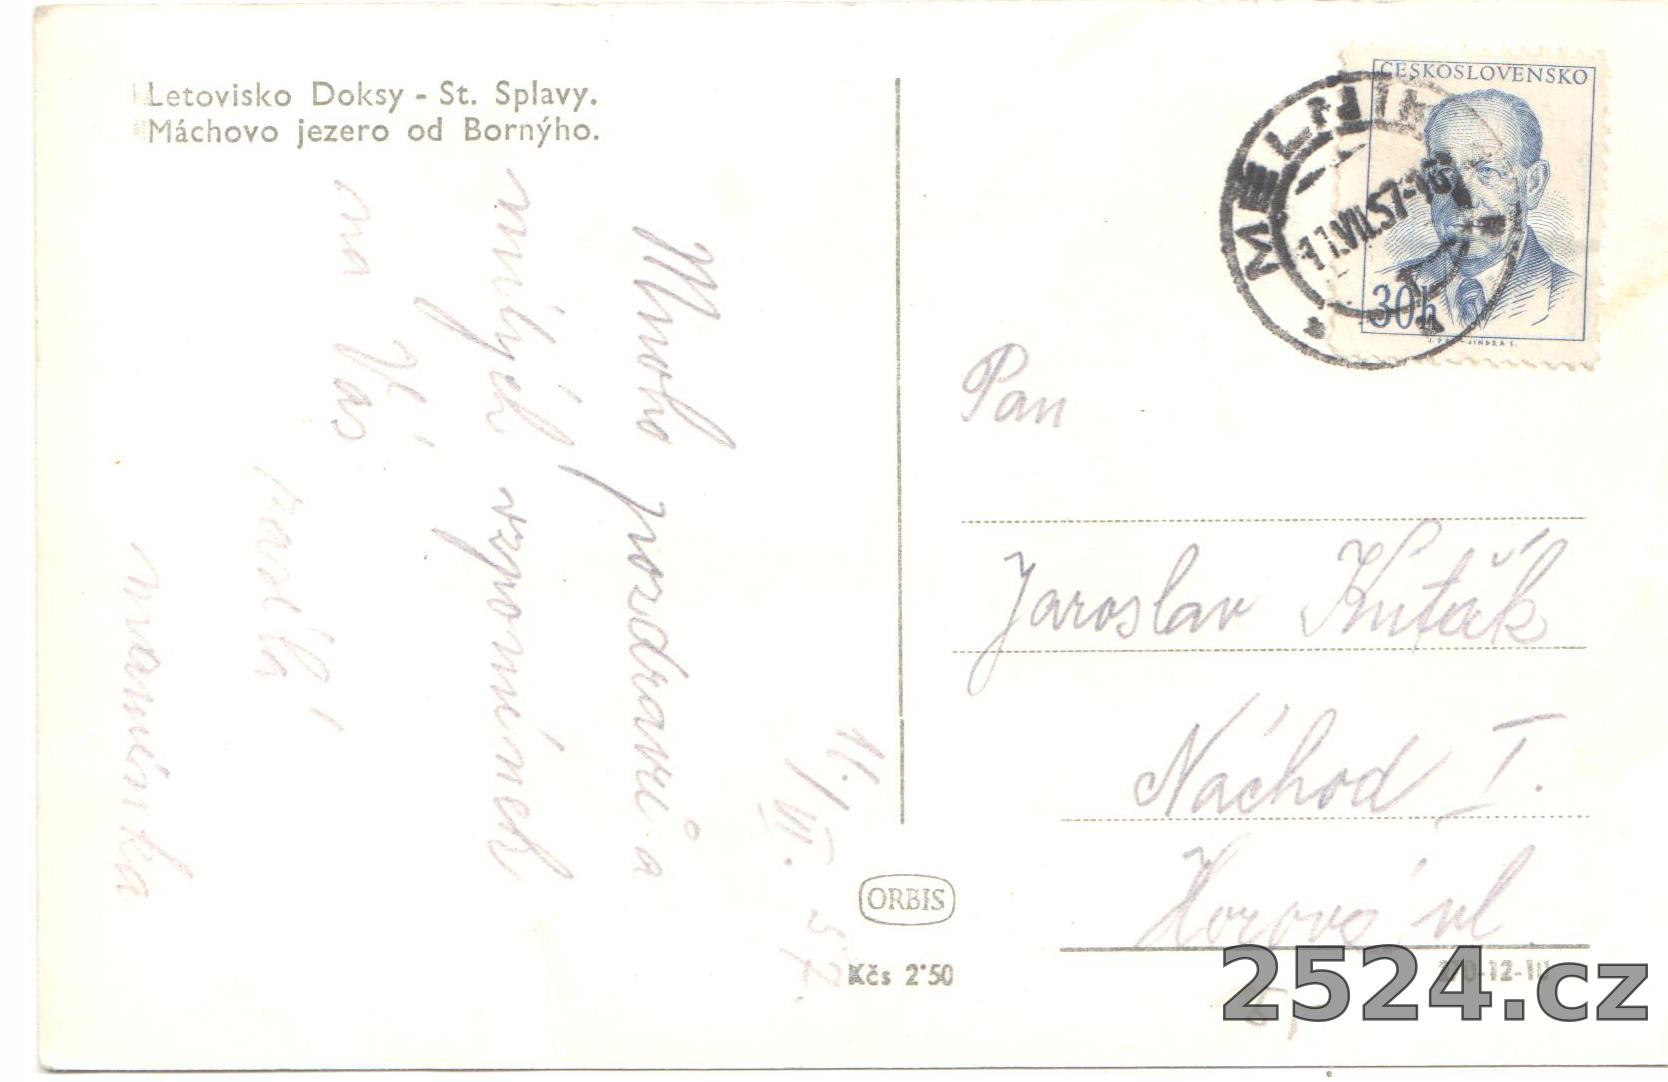 Letovisko Doksy - St. Splavy.
Máchovo jezero od Bornýho.
11./VII. 57.
Mnoho pozdravů a
milých vzpomínek
na Vás
zasílá
maminka
ORBIS
Kčs 2˙50
ČESKOSLOVENSKO
30h
JINDRA S.
MĚLNÍK
11.VII.57
Pan
Jaroslav Kuťák
Náchod I.
Horova ul
6,
2524.cz